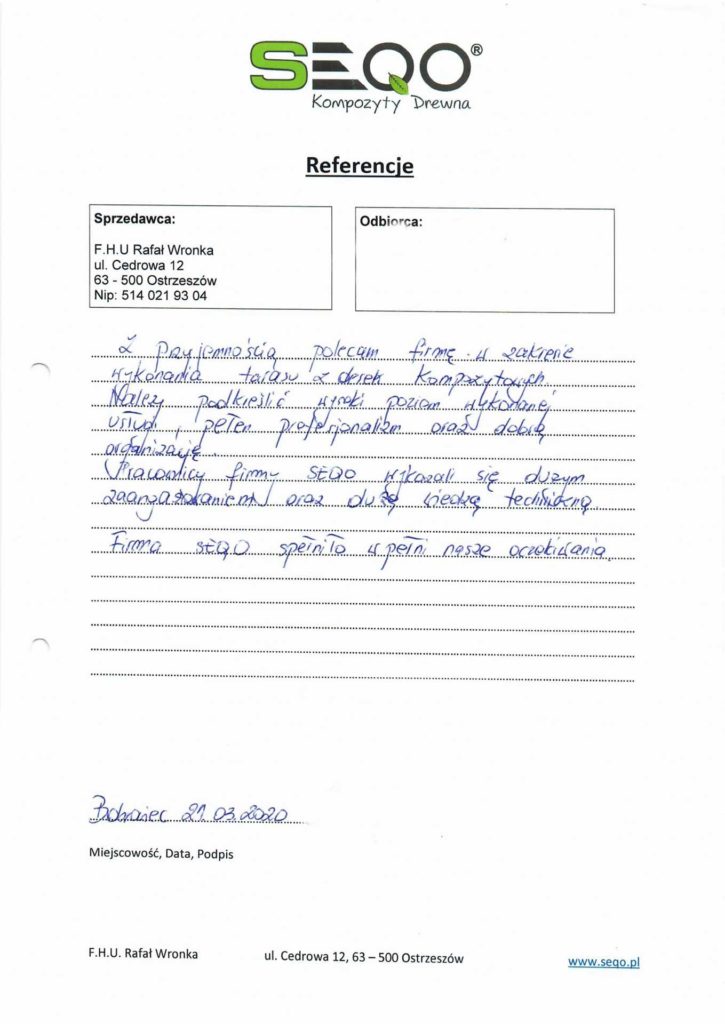 SEQO®
Kompozyty Drewna
Referencje
Sprzedawca:
F.H.U Rafał Wronka
ul. Cedrowa 12
63 - 500 Ostrzeszów
Nip: 514 021 93 04
Odbiorca:
Z Przyjemnością polecam firmę w zakresie
wykonania tarasu z desek kompozytowych.
Należy podkreślić wysoki poziom wykonanej
usługi, pełen profesjonalizm oraz dobrą
organizację.
Pracownicy firmy SEQO wykazali się dużym
zaangażowaniem oraz dużą wiedzą techniczną
Firma SEQO spełniła w pełni nasze oczekiwania.
21.03.2020
Miejscowość, Data, Podpis
F.H.U. Rafał Wronka
ul. Cedrowa 12, 63 – 500 Ostrzeszów
www.seqo.pl